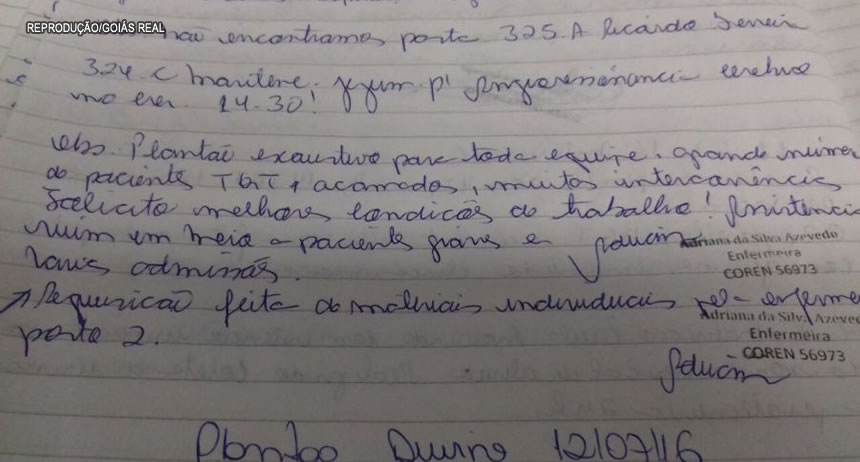 REPRODUÇÃO/GOIÁS REAL
não encontramos posto 325.A Ricardo
324.C Marilene. jejum p/ Angioressonancia cerebral
no crer. 14.30!
Obs. Plantão exaustivo para toda equipe. grande númer
de pacientes TQT, acamados, muitas intercorrências
Solicito melhores condições de trabalho! Assistencia
ruim em meio a pacientes graves e
novas admissões.
Adriana da Silva Azevedo
Enfermeira
COREN 56973
→ Requisição feita de materiais individuais pela enferme
posto 2.
Adriana da Silva Azeve
Enfermeira
COREN 56973
Plantão Diurno 12/07/16